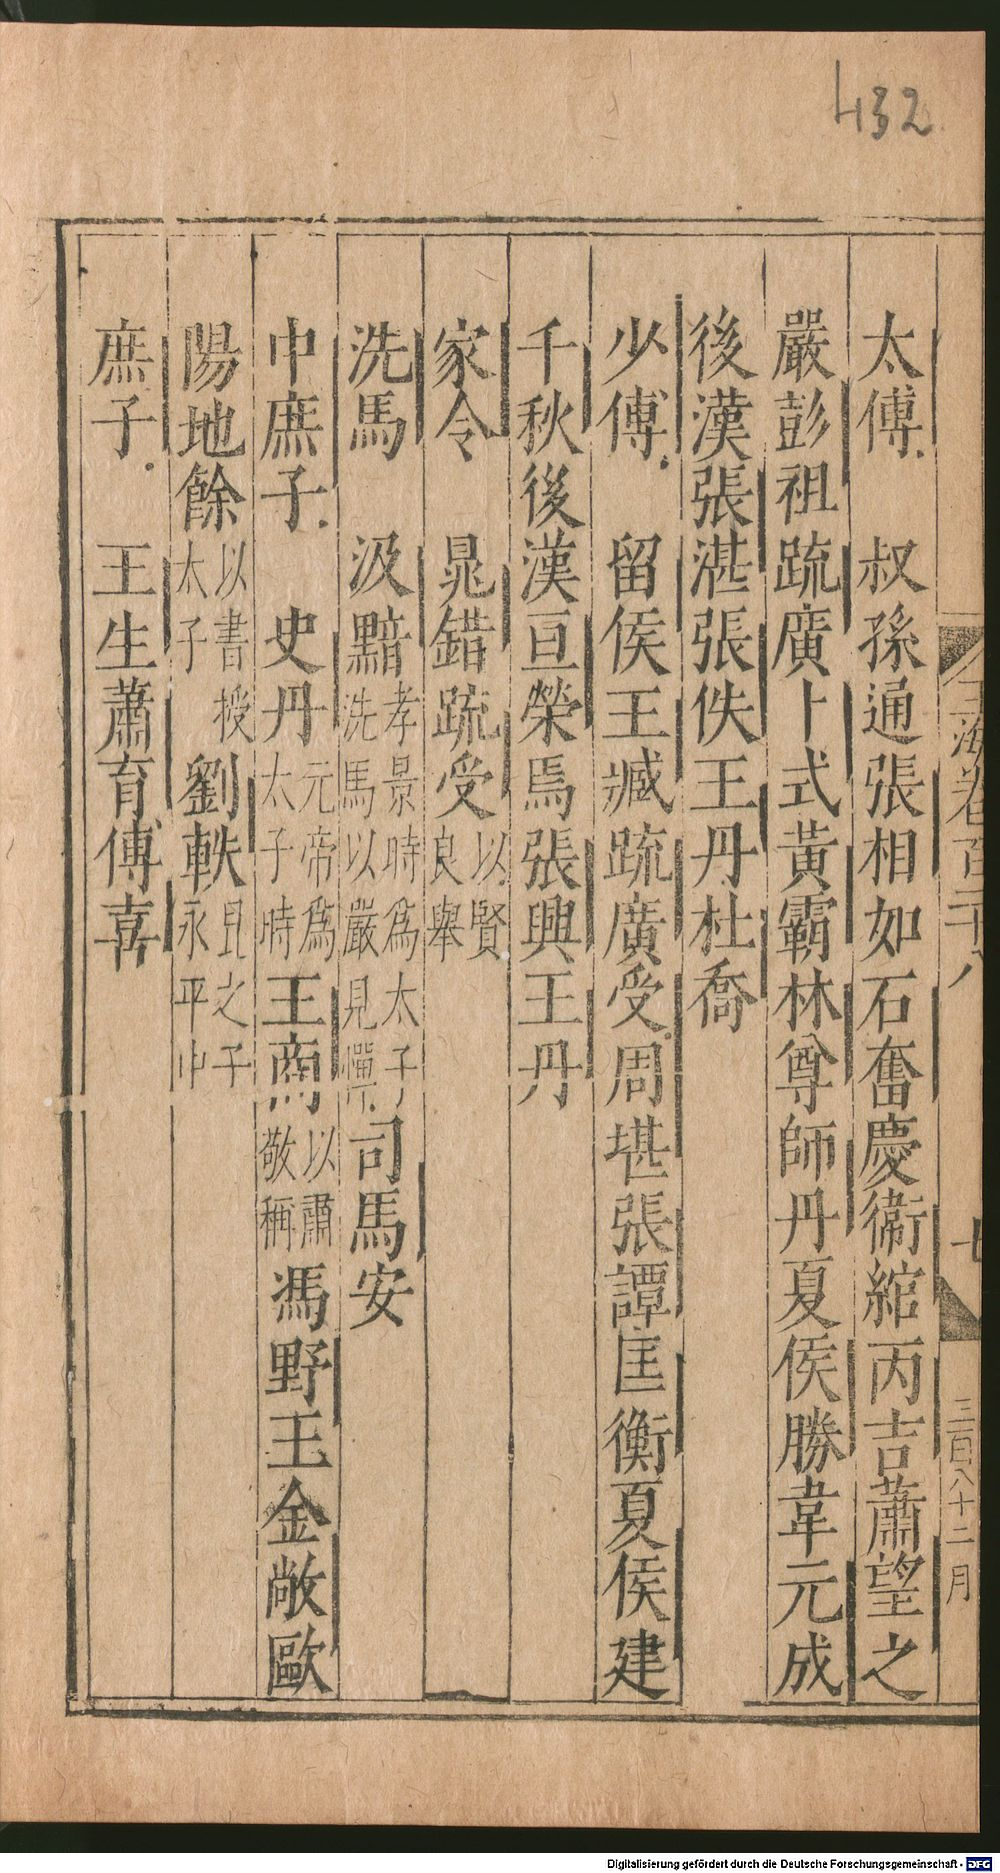 432
玉海卷百二十八
七
三百八十二月
太傅　叔孫通張相如石奮慶衛綰丙吉蕭望之
嚴彭祖疏廣卜式黃霸林尊師丹夏侯勝韋元成
後漢張湛張佚王丹杜喬
少傅　留侯王臧疏廣受周堪張譚匡衡夏侯建
千秋後漢亘榮焉張興王丹
家令　晁錯疏受以賢良舉
洗馬　汲黯孝景時為太子洗馬以嚴見憚司馬安
中庶子　史丹元帝為太子時王商以肅敬稱馮野王金敞歐
陽地餘以書授太子劉軼昆之子永平中
庶子　王生蕭育傅喜
Digitalisierung gefördert durch die Deutsche Forschungsgemeinschaft - DFG